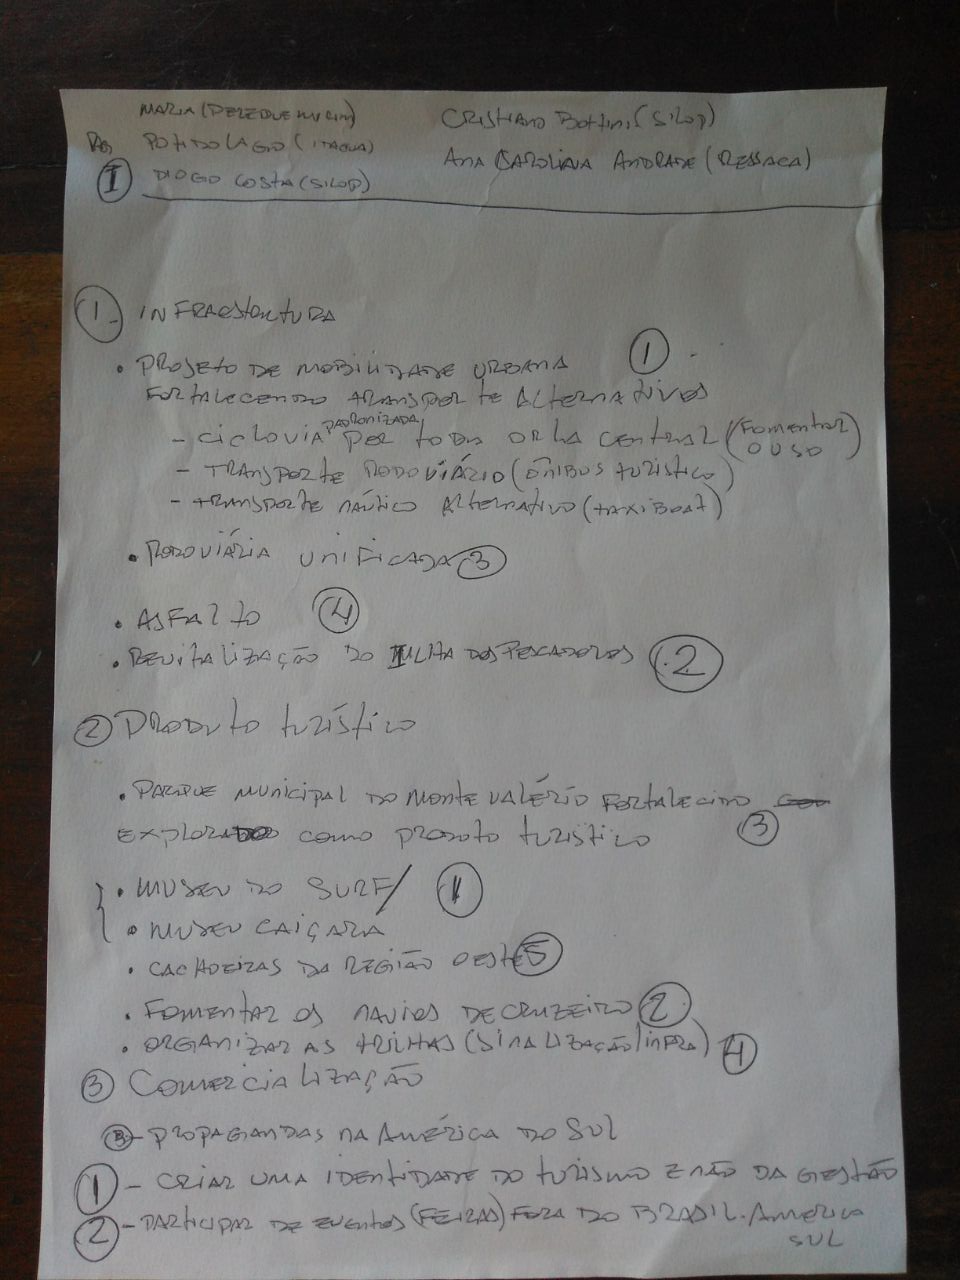 MARIA (PEREQUE MIRIM)
CRISTIANO BOTTINI (SILOP)
POTI DO LAGO (ITAGUA)
ANA CAROLINA ANDRADE (RESSACA)
I DIOGO COSTA (SILOP)
1- INFRAESTRUTURA
• PROJETO DE MOBILIDADE URBANA 1
FORTALECENDO TRANSPORTE ALTERNATIVOS
- CICLOVIA PADRONIZADA POR TODA ORLA CENTRAL (FOMENTAR O USO)
- TRANSPORTE RODOVIÁRIO (ÔNIBUS TURISTICO)
- TRANSPORTE NÁUTICO ALTERNATIVO (TAXIBOAT)
• RODOVIÁRIA UNIFICADA 3
• ASFALTO 4
• REVITALIZAÇÃO DO ILHA DOS PESCADORES 2
2 PRODUTO TURÍSTICO
• PARQUE MUNICIPAL DO MONTE VALÉRIO FORTALECIDO
EXPLORADO COMO PRODUTO TURISTICO 3
• MUSEU DO SURF/ 1
• MUSEU CAIÇARA
• CACHOEIRAS DA REGIÃO OESTE 5
• FOMENTAR OS NAVIOS DE CRUZEIRO 2
• ORGANIZAR AS TRILHAS (SINALIZAÇÃO/INFRA) 4
3 COMERCIALIZAÇÃO
3- PROPAGANDAS NA AMÉRICA DO SUL
1 - CRIAR UMA IDENTIDADE DO TURISMO E NÃO DA GESTÃO
2 - PARTICIPAR DE EVENTOS (FEIRAS) FORA DO BRASIL. AMÉRICA
SUL